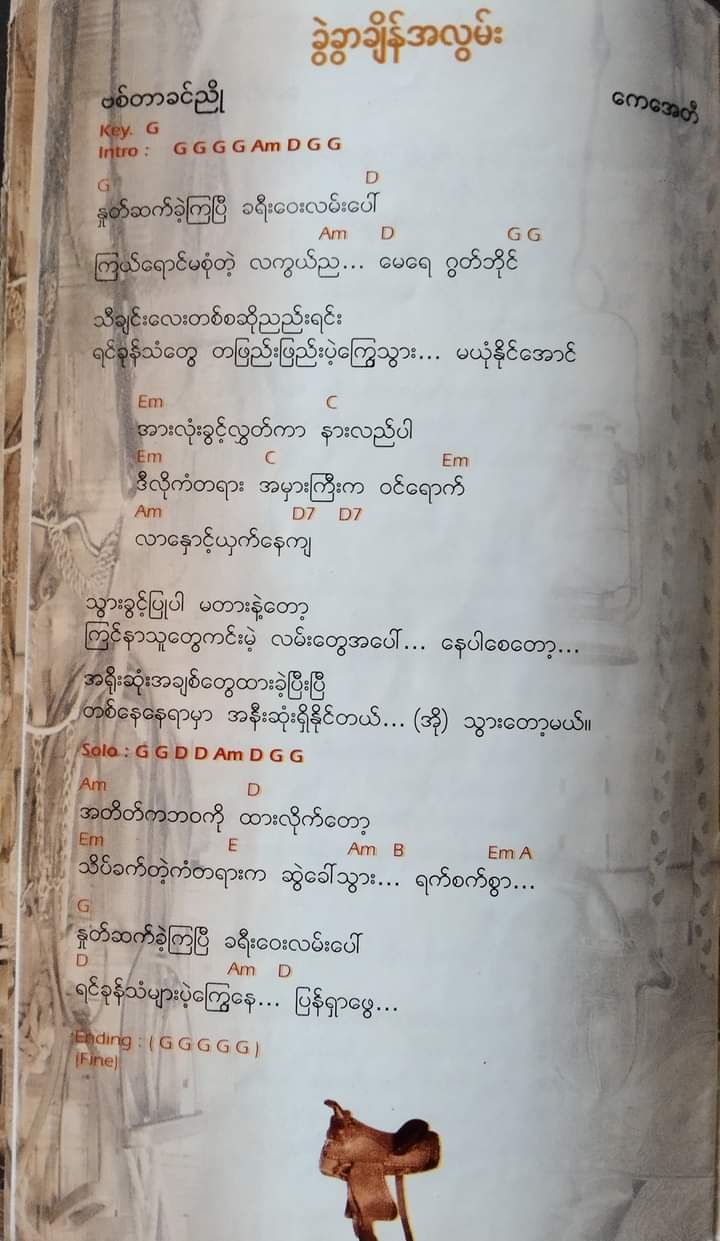 ခွဲခွာချိန်အလွမ်း
ဗစ်တာခင်ညို
ကေအေတီ
Key. G
Intro : G G G G Am D G G
G D
နှုတ်ဆက်ခဲ့ကြပြီ ခရီးဝေးလမ်းပေါ်
Am D G G
ကြယ်ရောင်မစုံတဲ့ လကွယ်ည... မေရေ ဂွတ်ဘိုင်
သီချင်းလေးတစ်စဆိုညည်းရင်း
ရင်ခုန်သံတွေ တဖြည်းဖြည်းပဲ့ကြွေသွား... မယုံနိုင်အောင်
Em C
အားလုံးခွင့်လွှတ်ကာ နားလည်ပါ
Em C Em
ဒီလိုကံတရား အမှားကြီးက ဝင်ရောက်
Am D7 D7
လာနှောင့်ယှက်နေကျ
သွားခွင့်ပြုပါ မတားနဲ့တော့
ကြင်နာသူတွေကင်းမဲ့ လမ်းတွေအပေါ်... နေပါစေတော့...
အရိုးဆုံးအချစ်တွေထားခဲ့ပြီးပြီ
တစ်နေနေရာမှာ အနီးဆုံးရှိနိုင်တယ်... (အို) သွားတော့မယ်။
Solo : G G D D Am D G G
Am D
အတိတ်ကဘဝကို ထားလိုက်တော့
Em E Am B Em A
သိပ်ခက်တဲ့ကံတရားက ဆွဲခေါ်သွား... ရက်စက်စွာ...
G
နှုတ်ဆက်ခဲ့ကြပြီ ခရီးဝေးလမ်းပေါ်
D Am D
ရင်ခုန်သံများပဲ့ကြွေနေ... ပြန်ရှာဖွေ...
Ending : ( G G G G G )
(Fine)